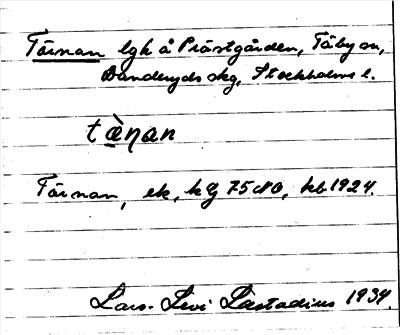 Tärnan lgh å Prästgården, Täby sn,
Danderyds skg, Stockholms l.
tæ̀ṇan
Tärnan, ek. kbl 75 NO, kb 1924.
Lars-Levi Læstadius 1934.